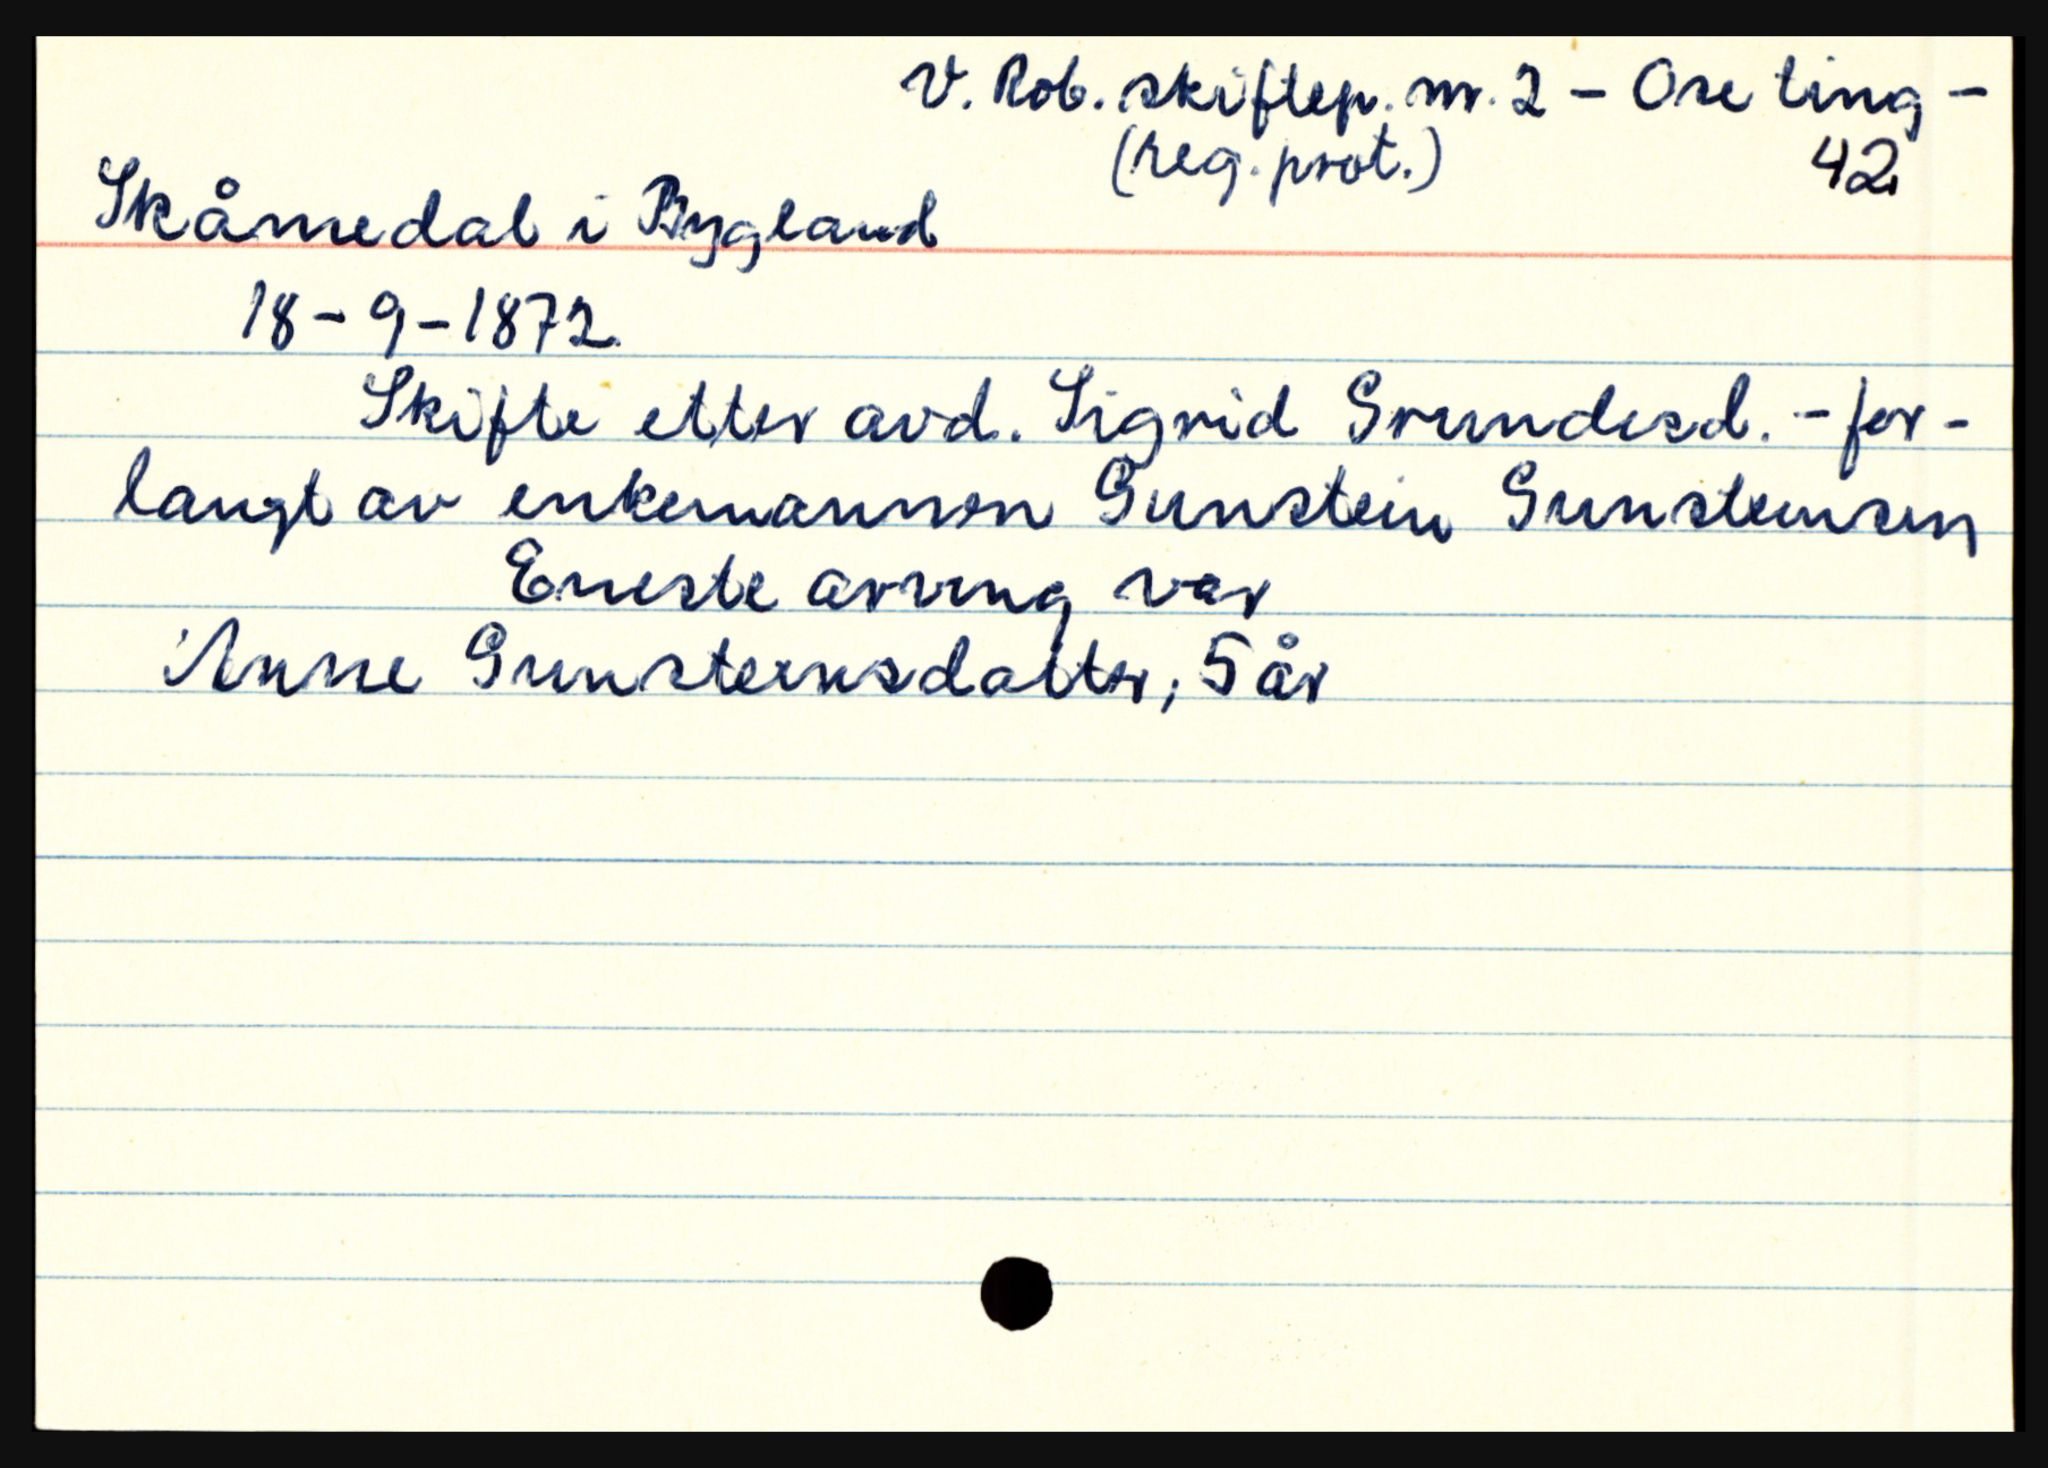 V. Rob. skiftep. nr. 2 - Ose ting -
(reg. prot.) 42
Skåmedal i Bygland
18-9-1872
Skifte etter avd. Sigrid Grundesd. - for-
langt av enkemannen Gunstein Gunsteinsen
Eneste arving var
Anne Gunsteinsdatter, 5 år